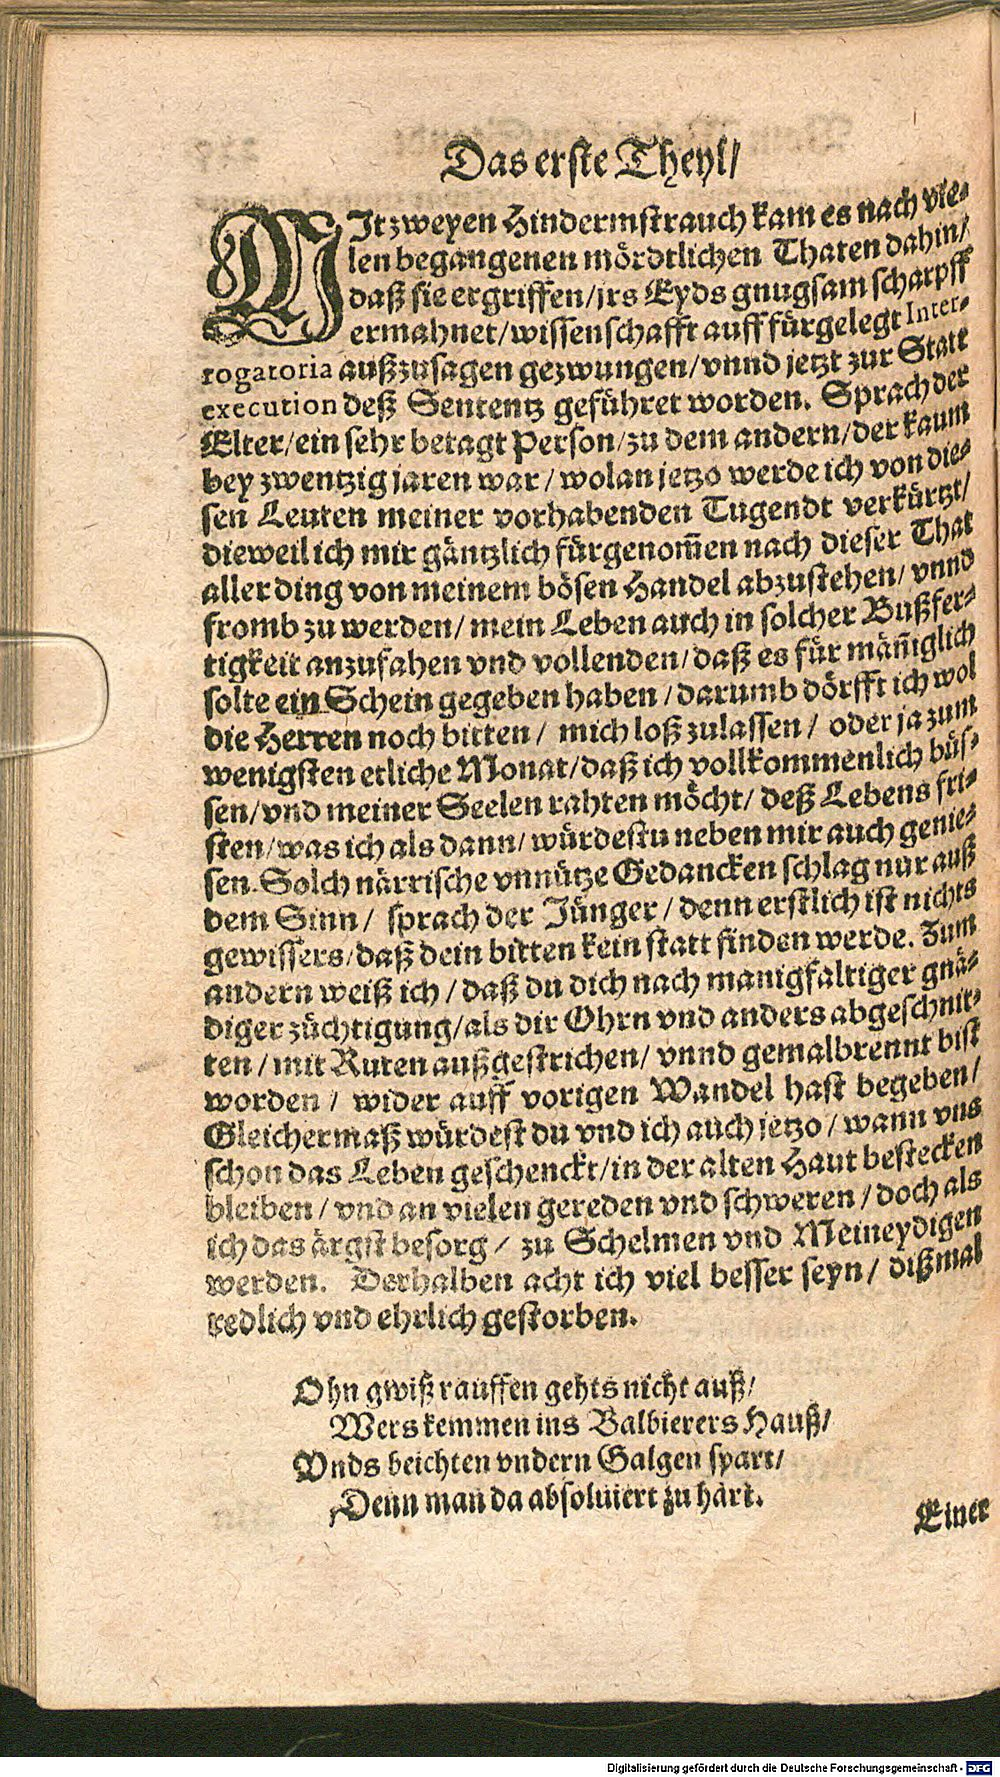 Das erste Theyl/
MJt zweyen Hindermstrauch kam es nach vie-
len begangenen mördtlichen Thaten dahin/
daß sie ergriffen/jrs Eyds gnugsam scharpff
ermahnet/wissenschafft auff fürgelegt Inter-
rogatoria außzusagen gezwungen/vnnd jetzt zur Statt
execution deß Sententz geführet worden. Sprach der
Elter/ein sehr betagt Person/zu dem andern/der kaum
bey zwentzig jaren war/wolan jetzo werde ich von die-
sen Leuten meiner vorhabenden Tugendt verkürtzt/
dieweil ich mir gäntzlich fürgenom̃en nach dieser That
aller ding von meinem bösen Handel abzustehen/vnnd
fromb zu werden/mein Leben auch in solcher Bußfer-
tigkeit anzufahen vnd vollenden/daß es für mäñiglich
solte ein Schein gegeben haben/darumb dörfft ich wol
die Herren noch bitten/ mich loß zulassen/ oder ja zum
wenigsten etliche Monat/daß ich vollkommenlich büs-
sen/vnd meiner Seelen rahten möcht/ deß Lebens fri-
sten/was ich als dann/würdestu neben mir auch genies-
sen. Solch närrische vnnütze Gedancken schlag nur auß
dem Sinn/ sprach der Jünger/denn erstlich ist nichts
gewissers/daß dein bitten kein statt finden werde. Zum
andern weiß ich/daß du dich nach manigfaltiger gnä-
diger züchtigung/als dir Ohrn vnd anders abgeschnit-
ten/mit Ruten außgestrichen/vnnd gemalbrennt bist
worden/ wider auff vorigen Wandel hast begeben/
Gleichermaß würdest du vnd ich auch jetzo/wann vns
schon das Leben geschenckt/in der alten Haut bestecken
bleiben/vnd an vielen gereden vnd schweren/doch als
ich das ärgst besorg/ zu Schelmen vnd Meineydigen
werden. Derhalben acht ich viel besser seyn/ dißmal
redlich vnd ehrlich gestorben.
Ohn gwiß rauffen gehts nicht auß/
Wers kemmen ins Balbierers Hauß/
Vnds beichten vndern Galgen spart/
Denn man da absoluiert zu hart.
Einer
Digitalisierung gefördert durch die Deutsche Forschungsgemeinschaft - DFG